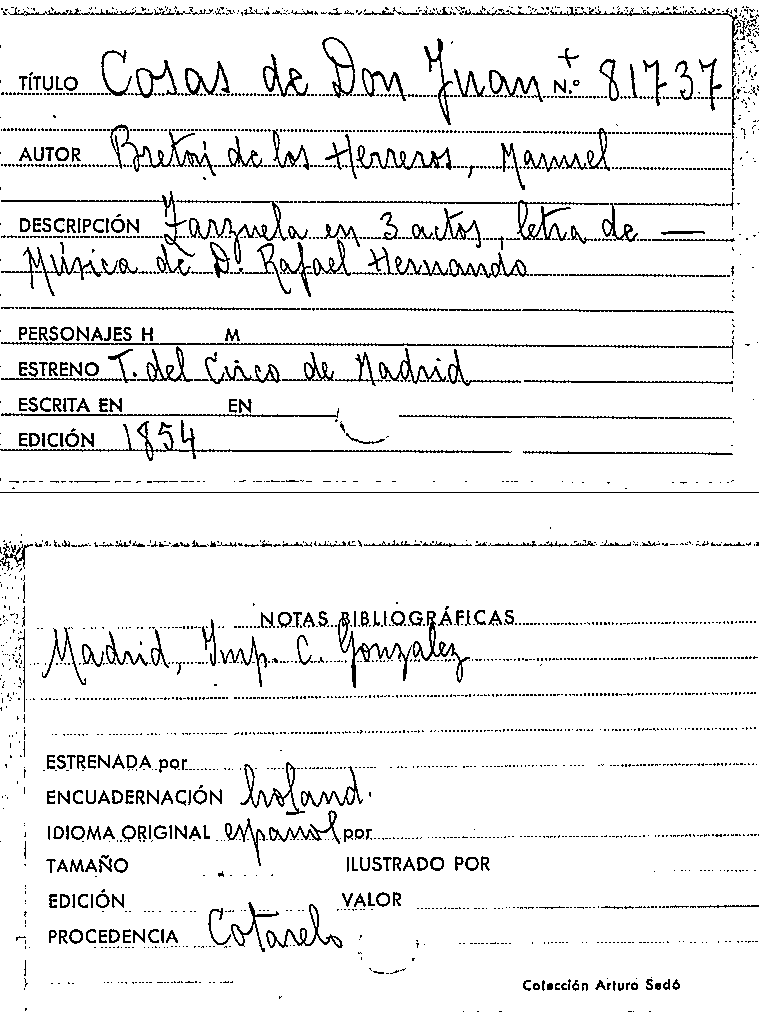 TÍTULO Cosas de Don Juan + N.º 81737
AUTOR Bretón de los Herreros, Manuel
DESCRIPCIÓN Zarzuela en 3 actos, letra de —
Música de D. Rafael Hernando
PERSONAJES H M
ESTRENO T. del Circo de Madrid
ESCRITA EN EN
EDICIÓN 1854
NOTAS BIBLIOGRÁFICAS
Madrid, Imp. C. Gonzalez
ESTRENADA por
ENCUADERNACIÓN holand.
IDIOMA ORIGINAL español por
TAMAÑO ILUSTRADO POR
EDICIÓN VALOR
PROCEDENCIA Cotarelo
Colección Arturo Sedó